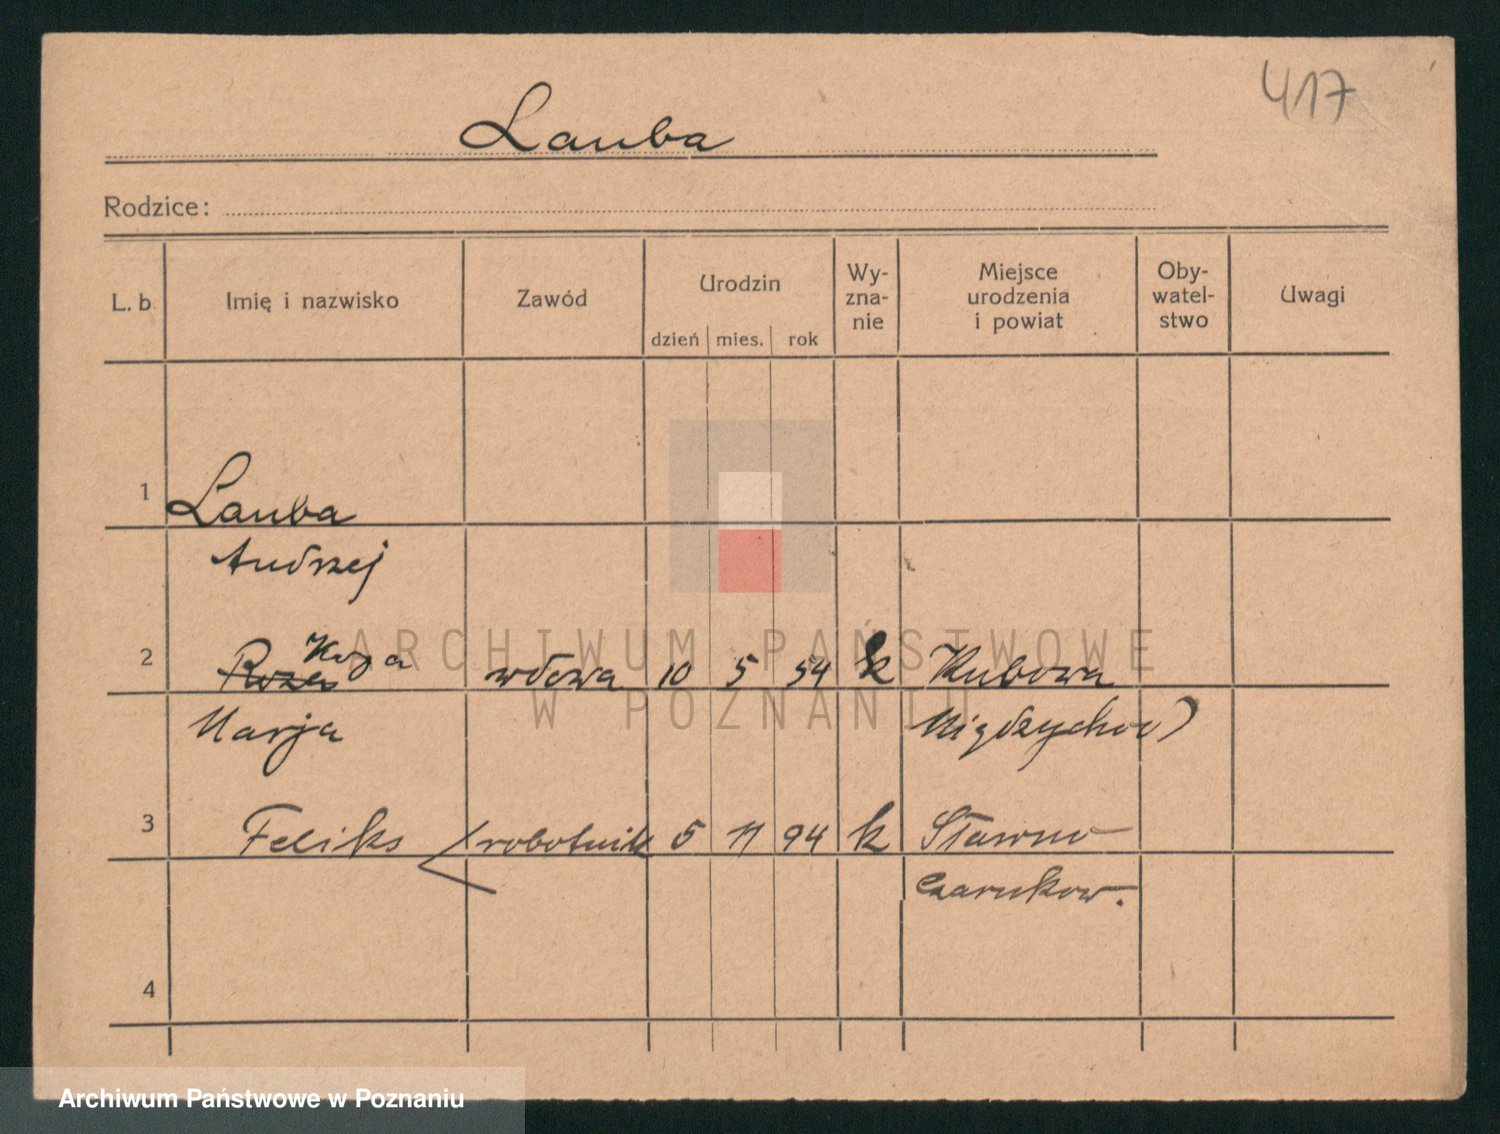 417
Lauba
Rodzice:
L. b. Imię i nazwisko Zawód Urodzin Wy-zna-nie Miejsce urodzenia i powiat Oby-watel-stwo Uwagi
dzień mies. rok
1 Lauba
Andrzej
Koza
2 Roza wdowa 10 5 54 k Kubowa
Marja Międzychod
3 Feliks robotnik 5 11 94 k Sławno
Czarnkow.
4
ARCHIWUM PAŃSTWOWE
W POZNANIU
Archiwum Państwowe w Poznaniu